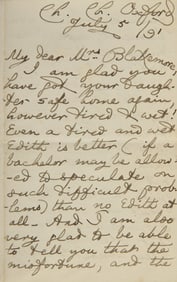 Ch. Ch. Oxford
July 5/91
My dear Mrs Blakemore,
I am glad you
have got your Daugh-
ter safe home again,
however tired & wet!
Even a tired and wet
Edith is better (if a
bachelor may be allow-
-ed to speculate on
such difficult prob-
lems) than no Edith at
all. And I am also
very glad to be able
to tell you that the
misfortune, and the